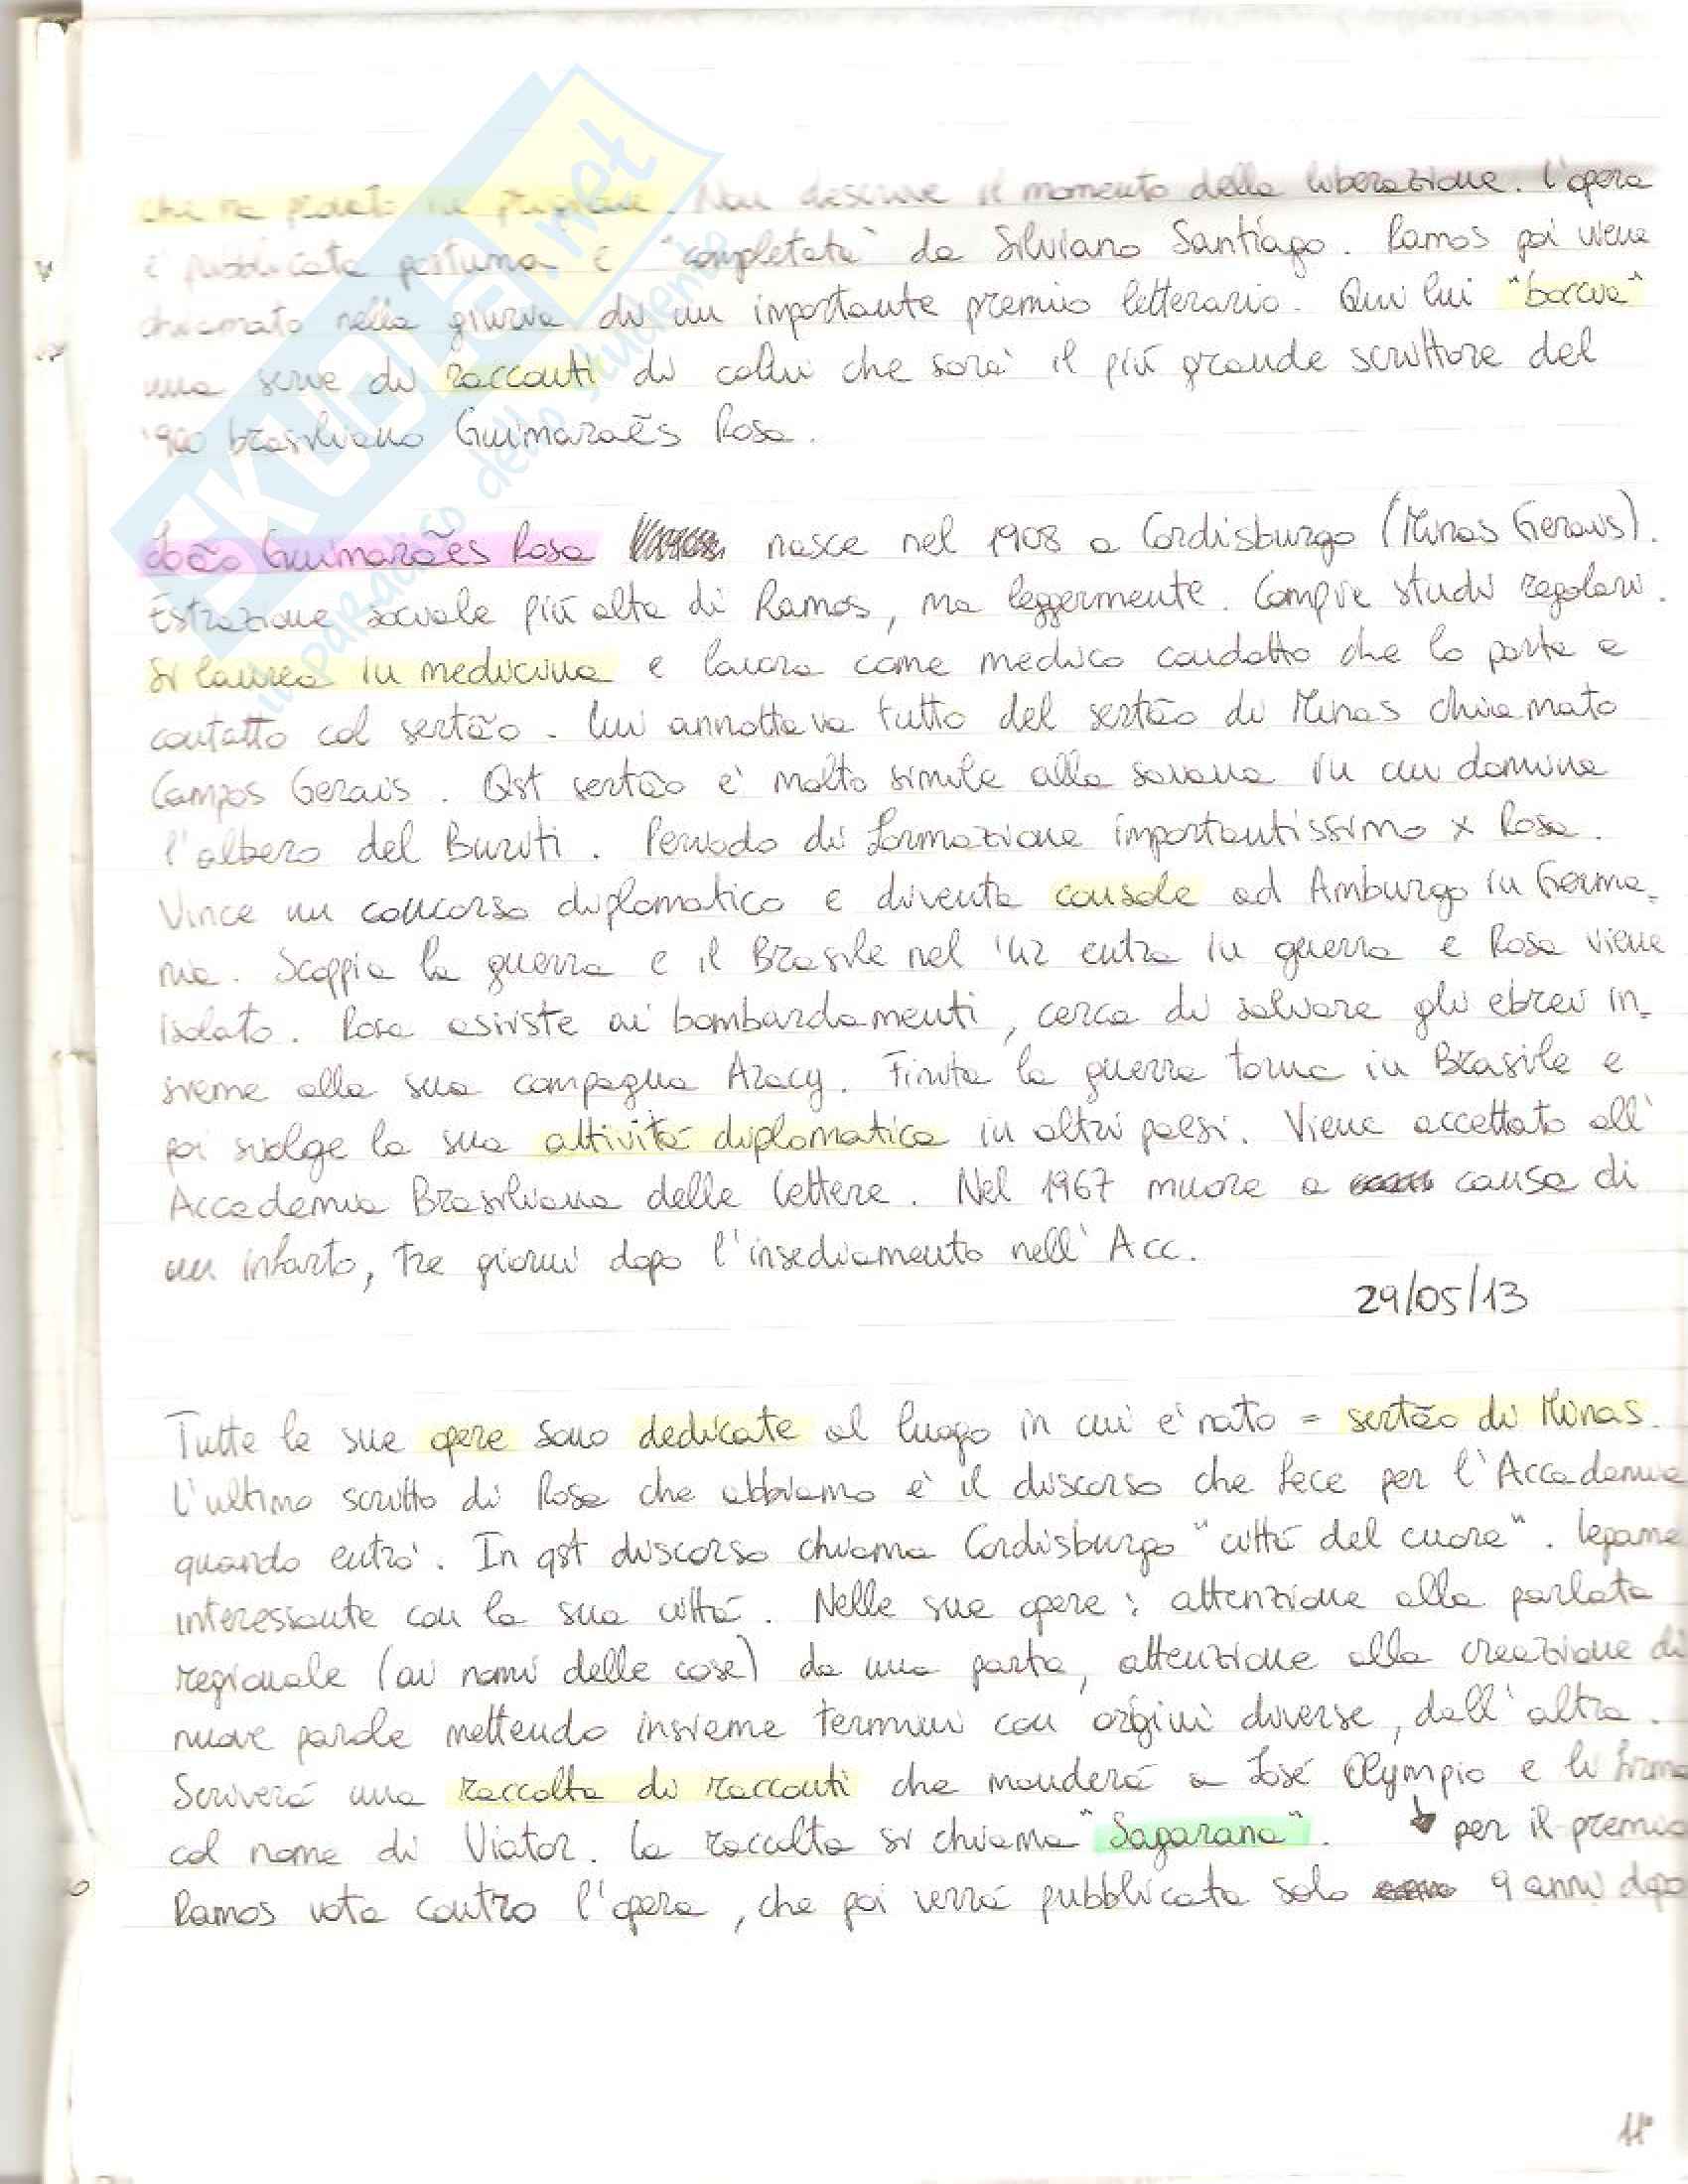 SKUOLA.net
il paradiso dello studente
chi ha . Non descrive il momento della liberazione. L'opera
è pubblicata postuma e "completata" da Silviano Santiago. Ramos poi viene
chiamato nella giuria di un importante premio letterario. Qui lui "boccia"
una serie di racconti di colui che sarà il più grande scrittore del
'900 brasiliano Guimaraẽs Rosa.
João Guimarães Rosa nasce nel 1908 a Cordisburgo (Minas Gerais).
Estrazione sociale più alta di Ramos, ma leggermente. Compie studi regolari.
Si laurea in medicina e lavora come medico condotto che lo porta a
contatto col sertão. Lui annottava tutto del sertão di Minas chiamato
Campos Gerais. Qst sertão è molto simile alla savana in cui domina
l'albero del Buriti. Periodo di formazione importantissimo x Rosa.
Vince un concorso diplomatico e diventa console ad Amburgo in Germa-
nia. Scoppia la guerra e il Brasile nel '42 entra in guerra e Rosa viene
isolato. Rosa asiste ai bombardamenti, cerca di salvare gli ebrei in-
sieme alla sua compagna Aracy. Finita la guerra torna in Brasile e
poi svolge la sua attività diplomatica in altri paesi. Viene accettato all'
Accademia Brasiliana delle Lettere. Nel 1967 muore a causa di
un infarto, tre giorni dopo l'insediamento nell'Acc.
29/05/13
Tutte le sue opere sono dedicate al luogo in cui è nato = sertão di Minas.
L'ultimo scritto di Rosa che abbiamo è il discorso che fece per l'Accademia
quando entrò. In qst discorso chiama Cordisburgo "città del cuore". Legame
interessante con la sua città. Nelle sue opere: attenzione alla parlata
regionale (ai nomi delle cose) da una parte, attenzione alla creazione di
nuove parole mettendo insieme termini con origini diverse, dall'altra.
Scriverà una raccolta di racconti che manderà a José Olympio e li firma
col nome di Viator. La raccolta si chiama "Sagarana". ↓ per il premio
Ramos vota contro l'opera, che poi verrà pubblicata solo 9 anni dopo
11°